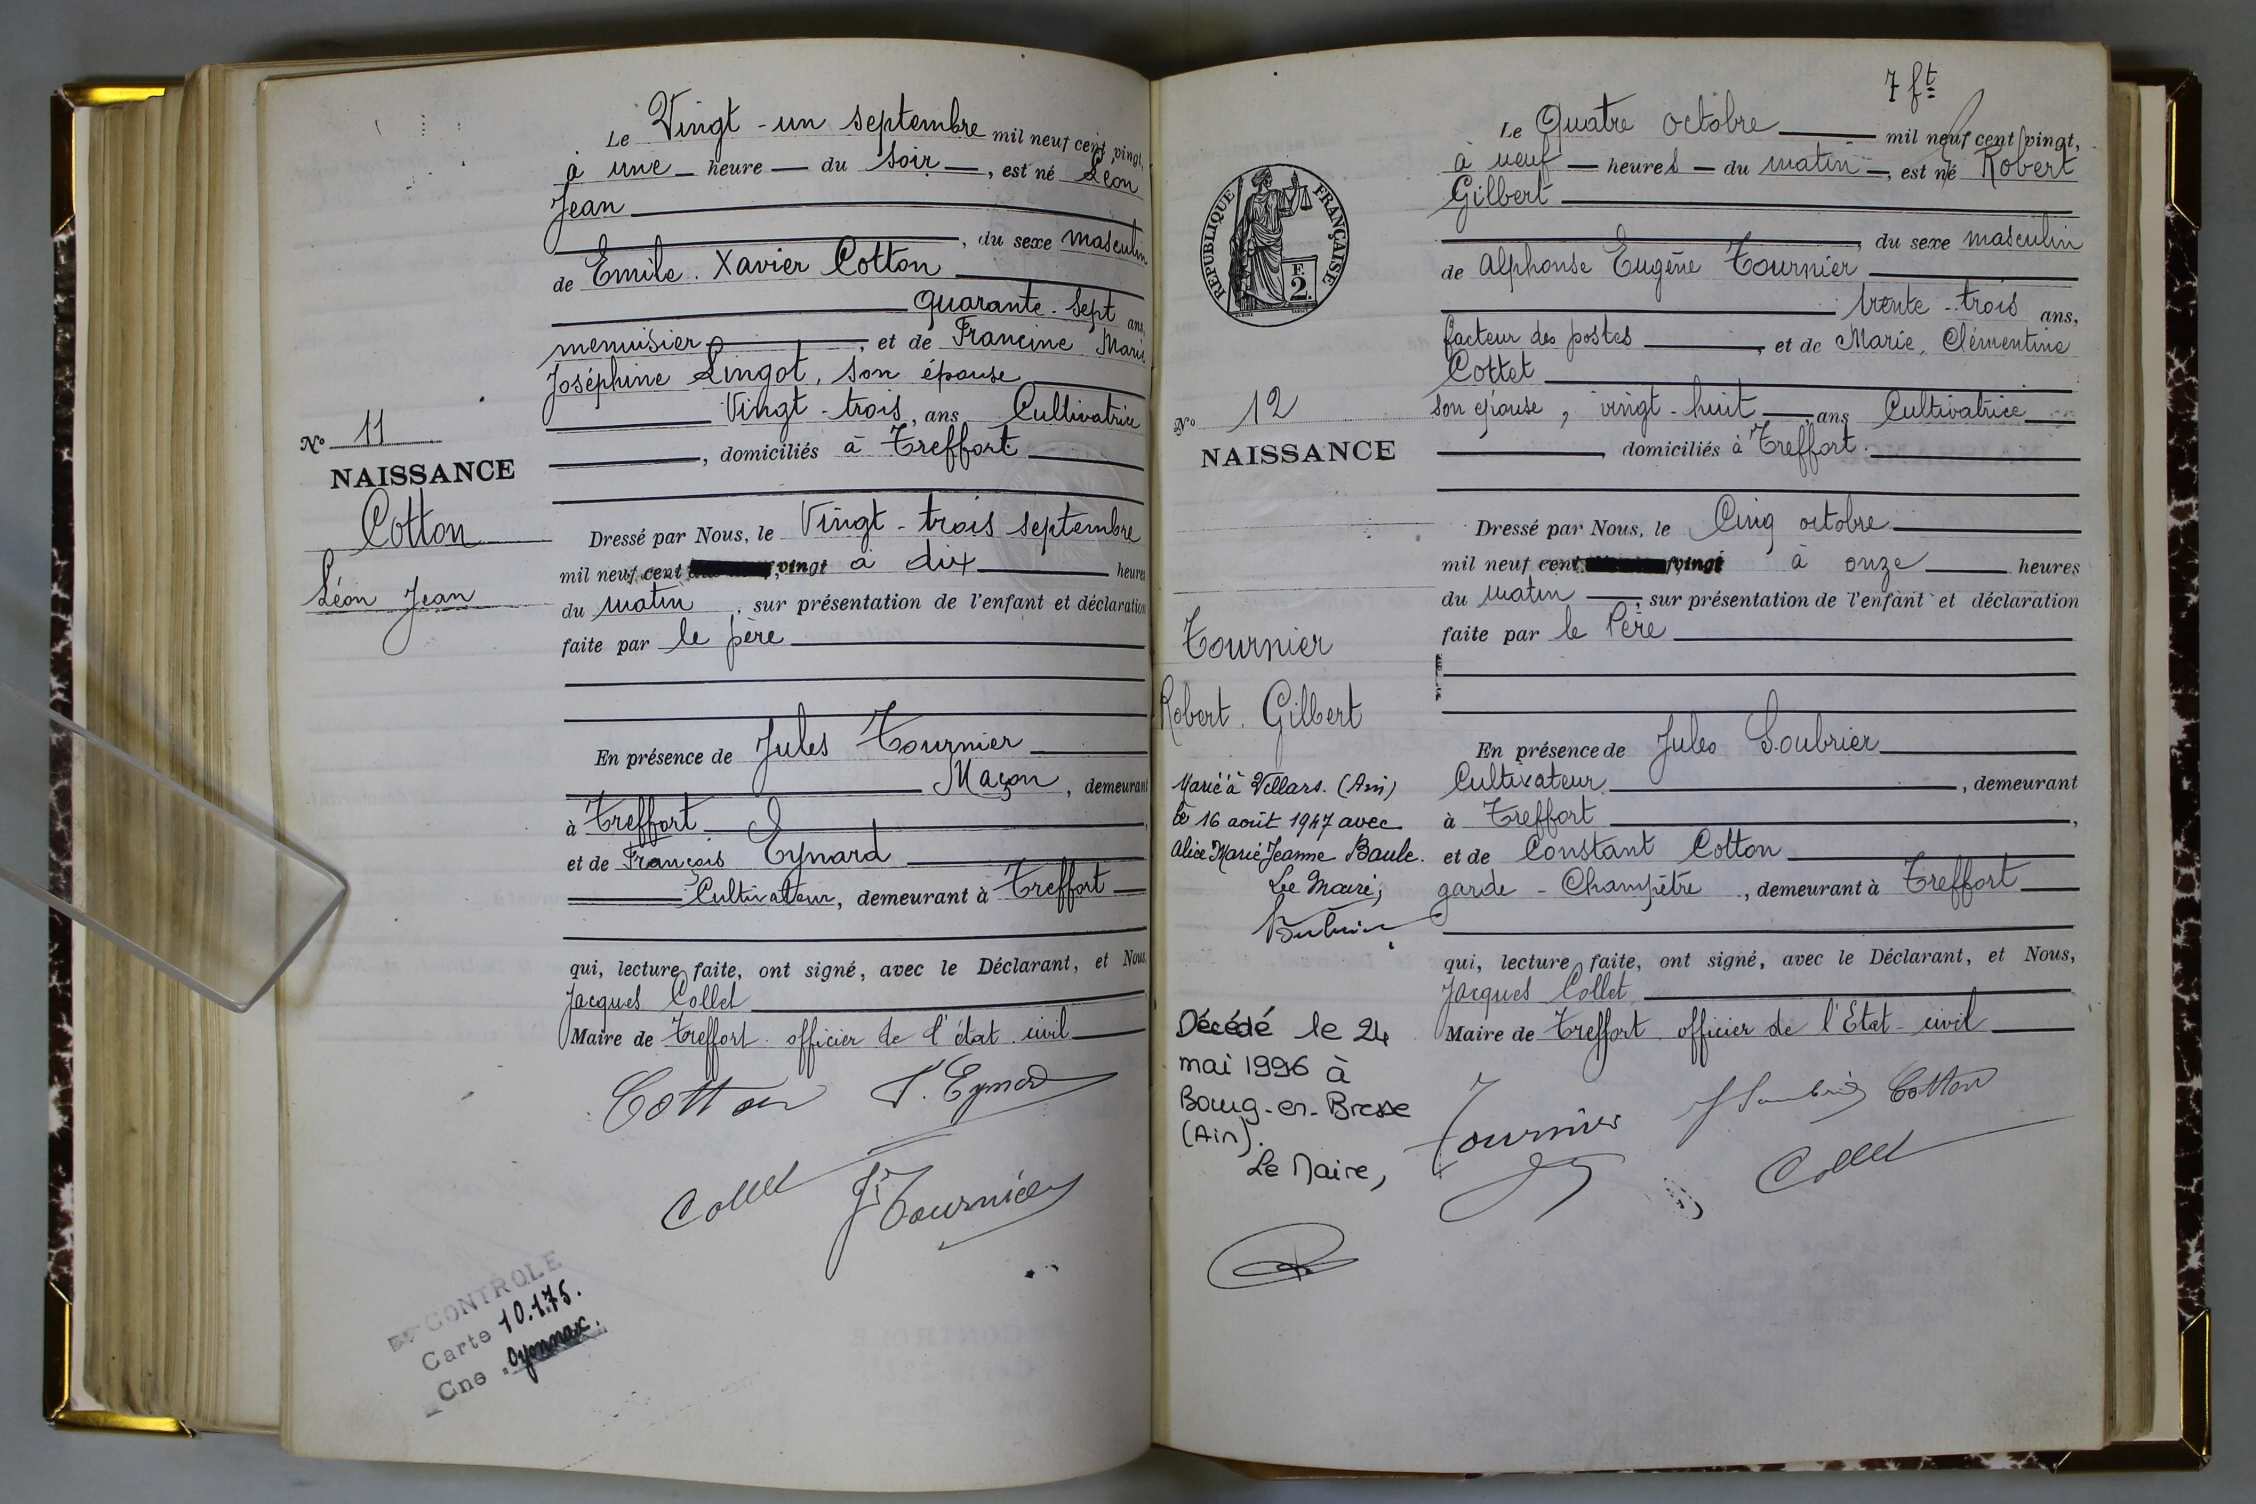 Le Vingt-un septembre mil neuf cent vingt,
à une heure du soir, est né Léon
Jean
, du sexe masculin
de Emile Xavier Cotton
quarante-sept ans,
menuisier, et de Francine Marie
Joséphine Lingot, son épouse
Vingt-trois, ans Cultivatrice
, domiciliés à Treffort
N° 11
NAISSANCE
Cotton
Léon Jean
Dressé par Nous, le Vingt-trois septembre
mil neuf cent vingt à dix heures
du matin, sur présentation de l'enfant et déclaration
faite par le père
En présence de Jules Tournier
Maçon, demeurant
à Treffort,
et de François Eynard
Cultivateur, demeurant à Treffort
qui, lecture faite, ont signé, avec le Déclarant, et Nous,
Jacques Collet
Maire de Treffort officier de l'état civil
Cotton F. Eynard
Collet Jules Tournier
CONTROLE
Carte 10.1.75.
Cne Oyonnax.
7 ft
Le Quatre octobre mil neuf cent vingt,
à neuf heures du matin, est né Robert
Gilbert
, du sexe masculin
de Alphonse Eugène Tournier
trente-trois ans,
facteur des postes, et de Marie, Clémentine
Cottet
son épouse, vingt-huit ans Cultivatrice
, domiciliés à Treffort.
REPUBLIQUE FRANÇAISE
F.
2.
N° 12
NAISSANCE
Tournier
Robert. Gilbert
Marié à Villars. (Ain)
le 16 août 1947 avec
Alice Marie Jeanne Baule.
Le Maire,
Décédé le 24
mai 1996 à
Bourg-en-Bresse
(Ain).
Le Maire,
Dressé par Nous, le Cinq octobre
mil neuf cent vingt à onze heures
du matin, sur présentation de l'enfant et déclaration
faite par le Père
En présence de Jules Soubrier
Cultivateur, demeurant
à Treffort,
et de Constant Cotton
garde-Champêtre, demeurant à Treffort
qui, lecture faite, ont signé, avec le Déclarant, et Nous,
Jacques Collet
Maire de Treffort officier de l'Etat-civil
Tournier J Soubrier Cotton
Collet